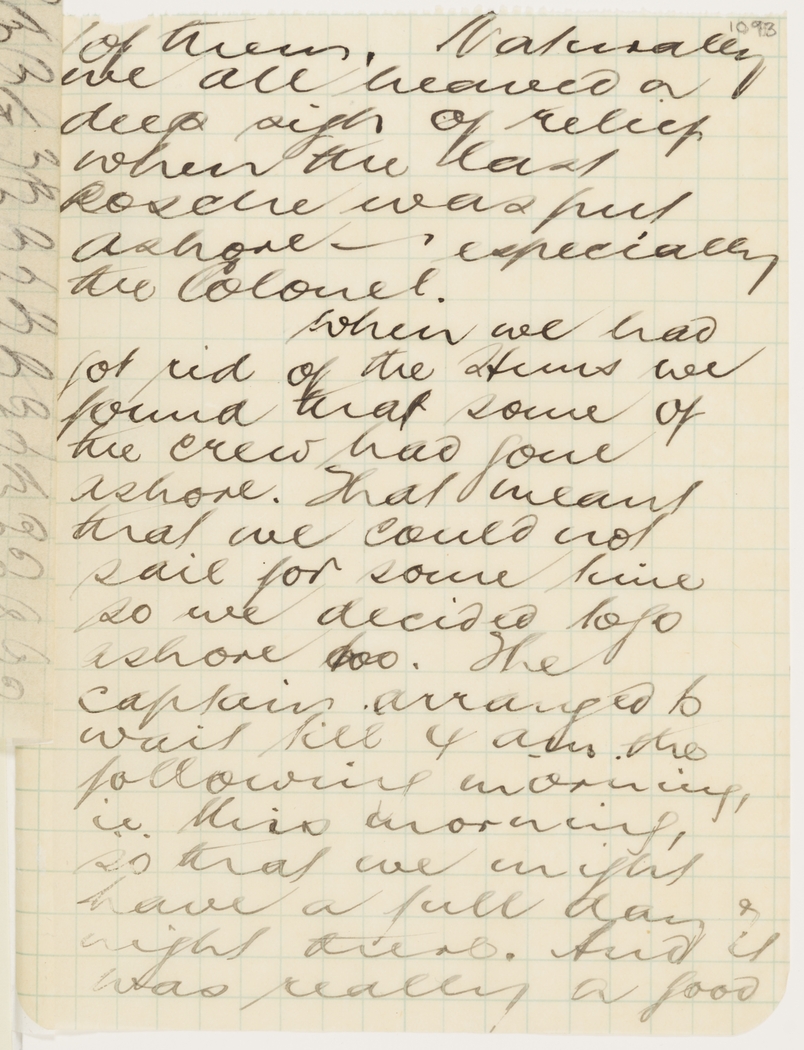 1093
of them. Naturally
we all heaved a
deep sigh of relief
when the last
Bosche was put
ashore — especially
the Colonel.
When we had
got rid of the Huns we
found that some of
the crew had gone
ashore. That meant
that we could not
sail for some time
so we decided to go
ashore too. The
captain arranged to
wait till 4 am the
following morning,
ie. this morning,
so that we might
have a full day &
night there. And it
was really a good